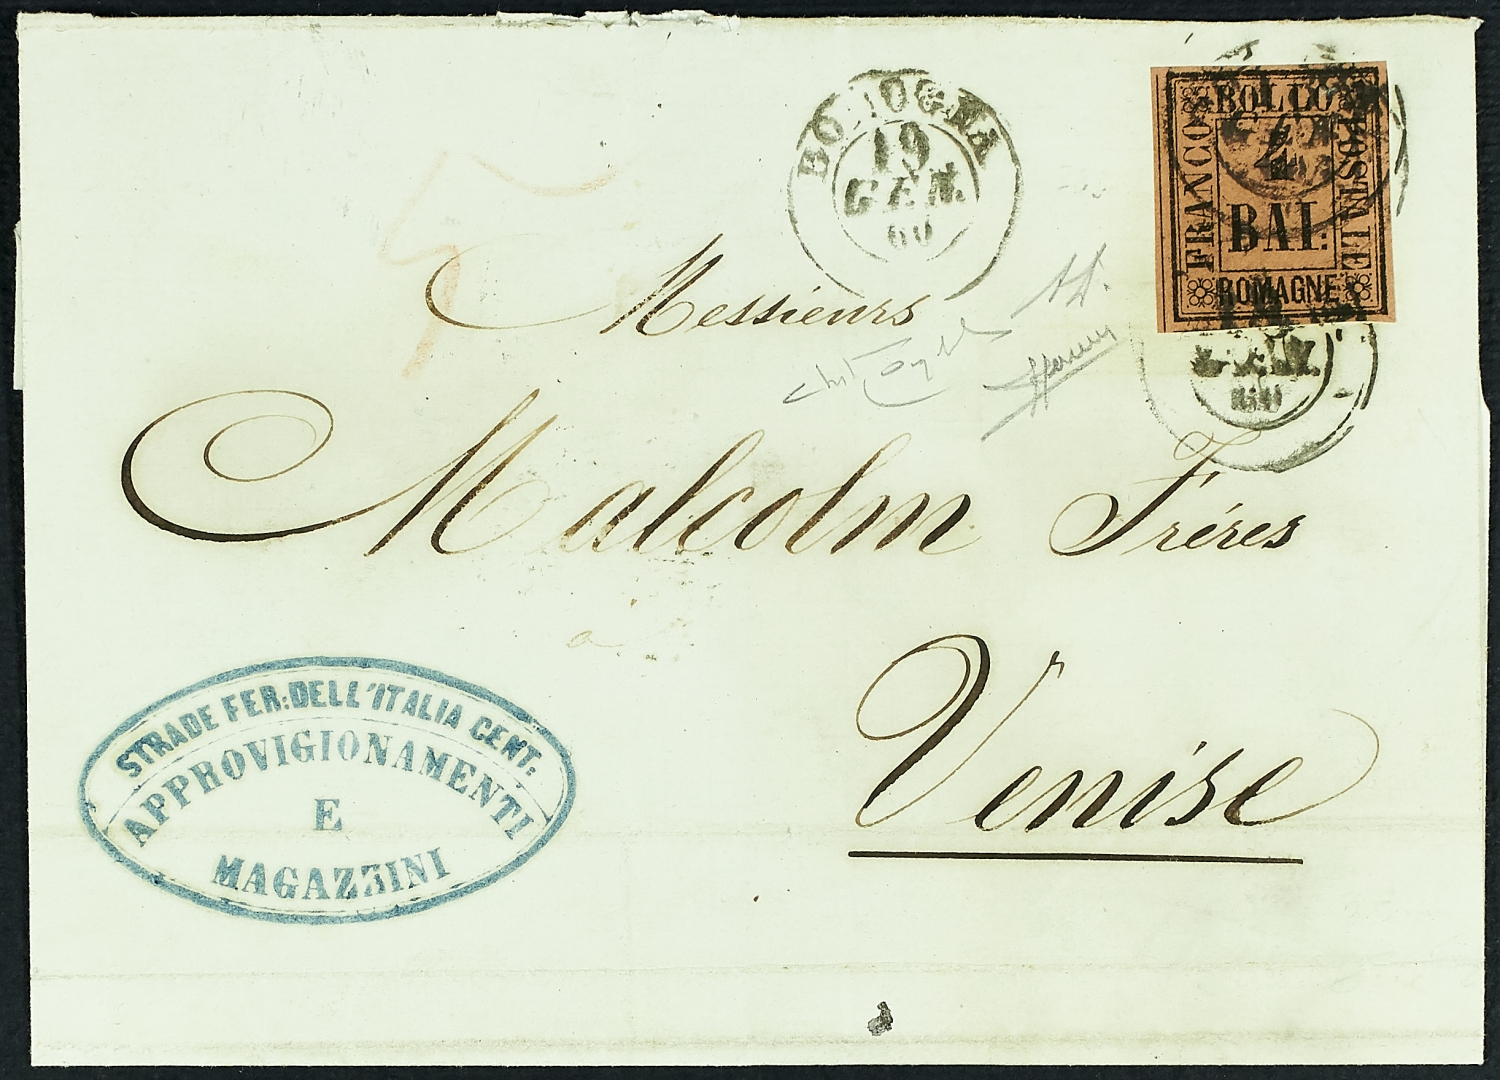 BOLOGNA
19
GEN.
60
BOLLO
FRANCO
POSTALE
4
BAI:
ROMAGNE
5
Messieurs
Malcolm Fréres
à
Venise
STRADE FER: DELL'ITALIA CENT:
APPROVIGIONAMENTI
E
MAGAZZINI